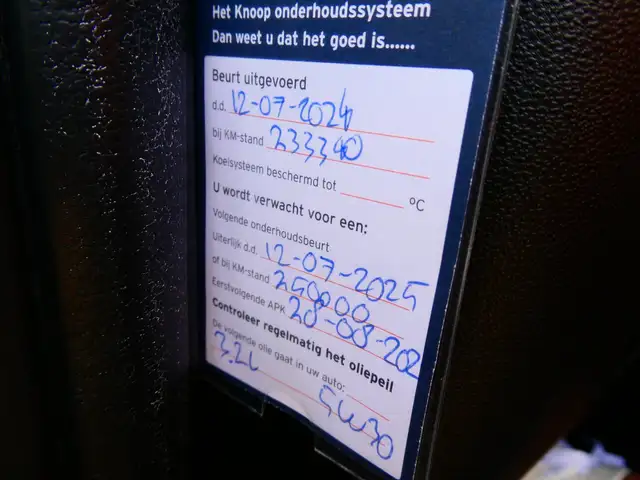 Het Knoop onderhoudssysteem
Dan weet u dat het goed is......
Beurt uitgevoerd
d.d. 12-07-2024
bij KM-stand 233340
Koelsysteem beschermd tot °C
U wordt verwacht voor een:
Volgende onderhoudsbeurt
Uiterlijk d.d. 12-07-2025
of bij KM-stand 250000
Eerstvolgende APK 28-08-202
Controleer regelmatig het oliepeil
De volgende olie gaat in uw auto:
3.2L 5W30